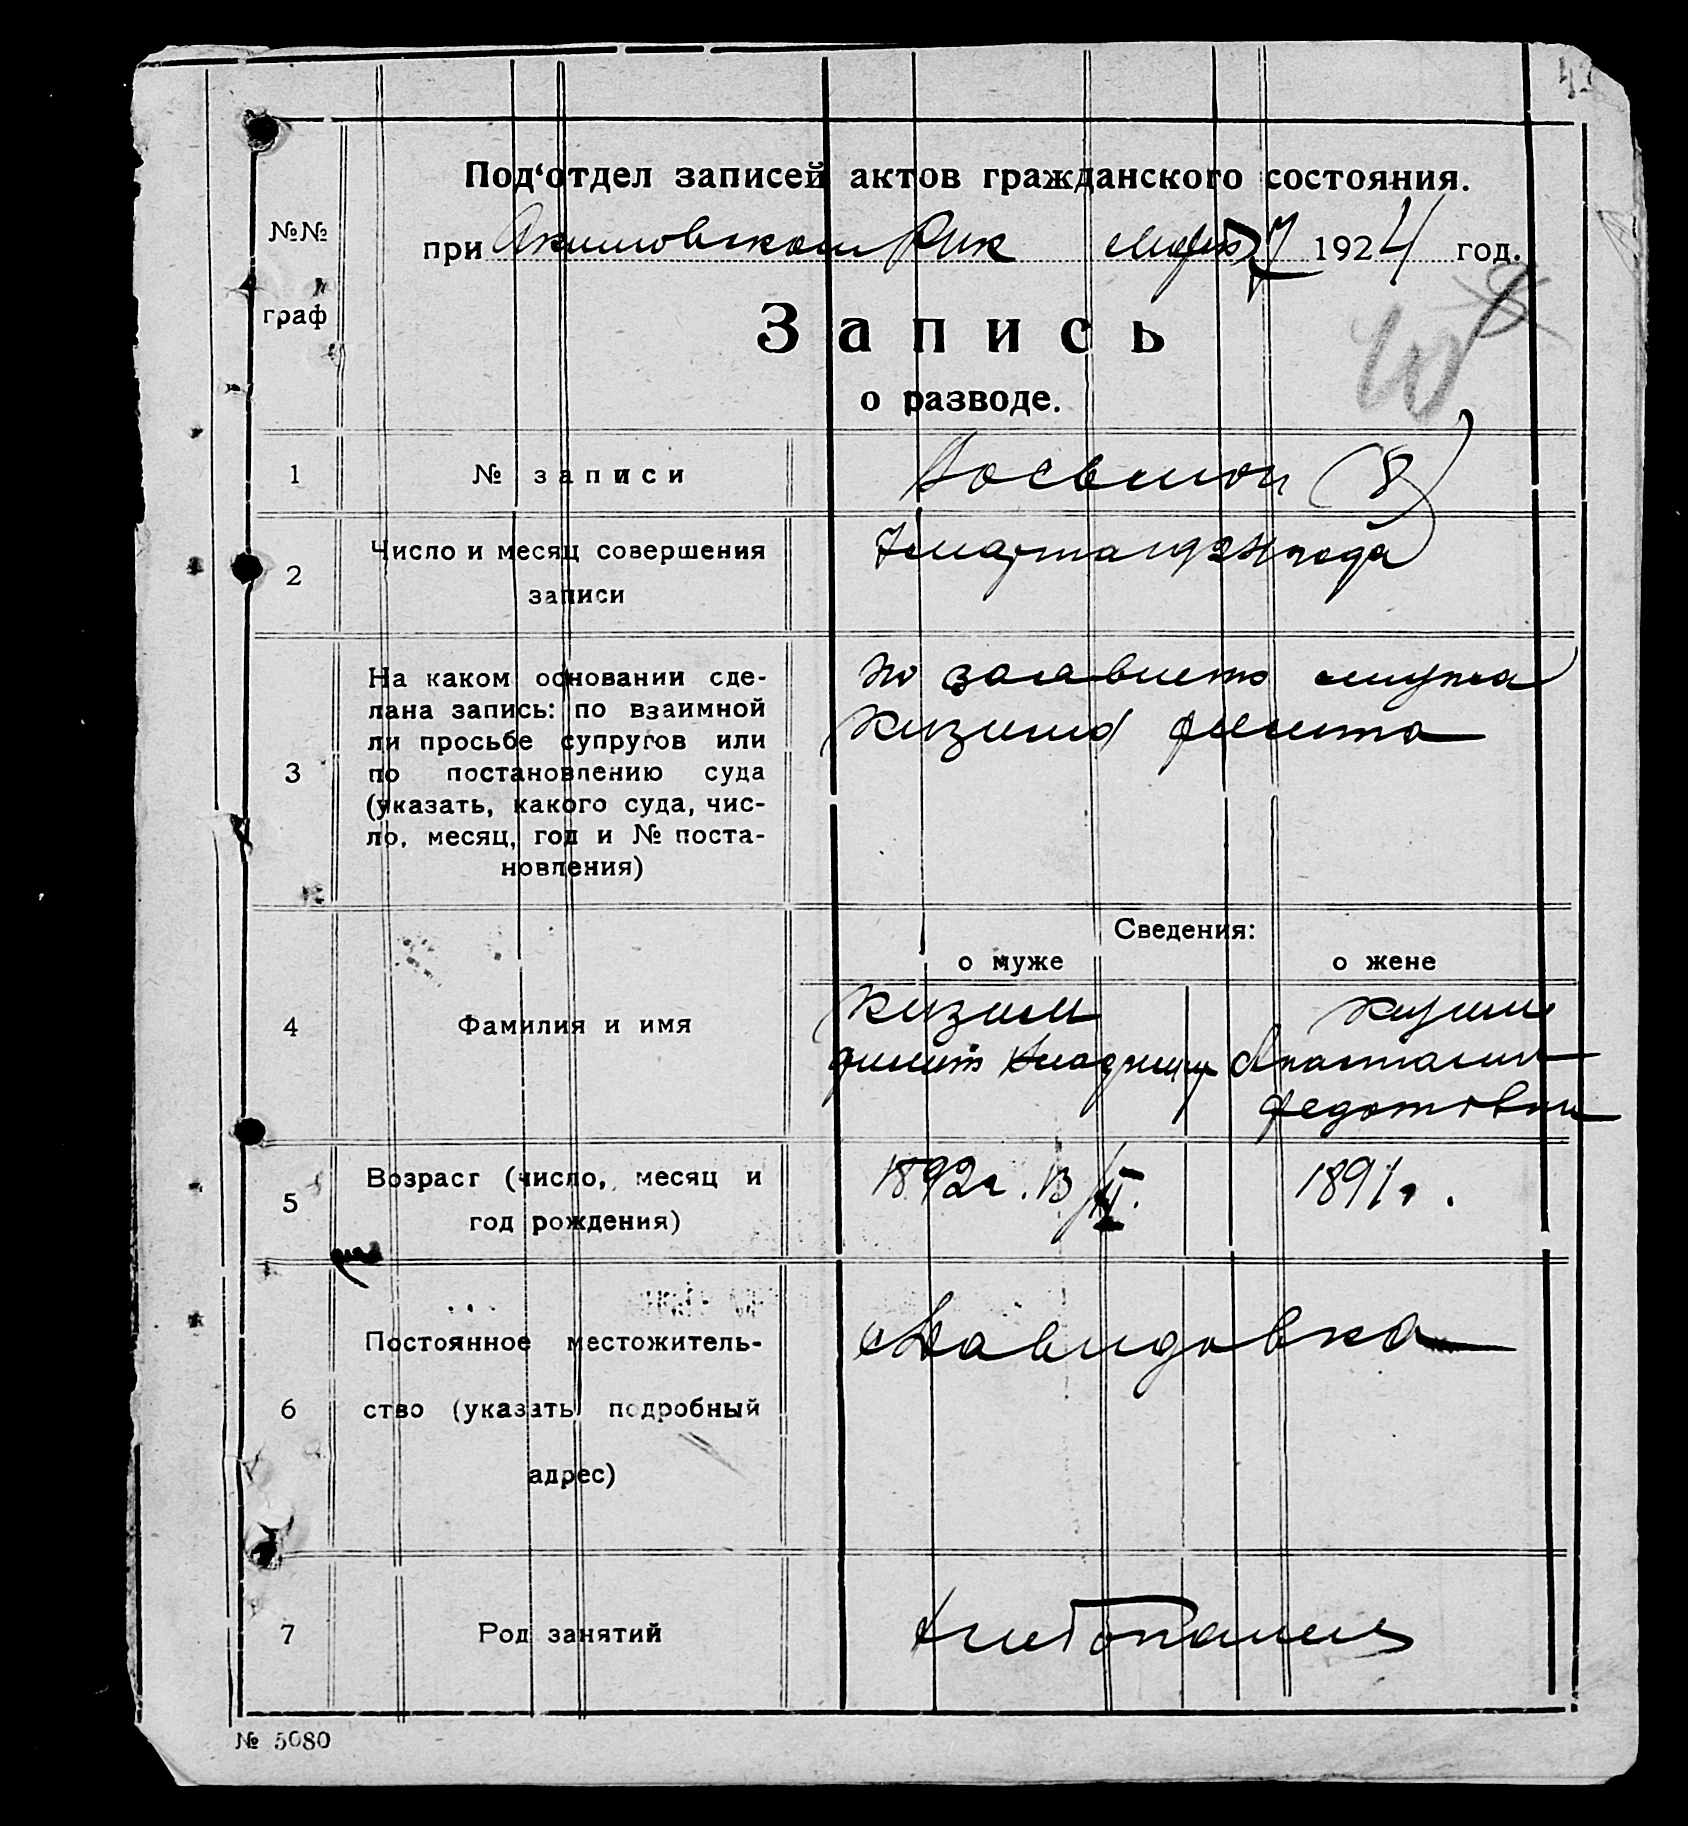 Под‘отдел записей актов гражданского состояния.
№№
граф
при Акимовском Рик марта 7 1924 год.
Запись
о разводе.
8
1 № записи Восьмой (8)
2 Число и месяц совершения
записи
7 марта 1924 года
3 На каком основании сде-
лана запись: по взаимной
ли просьбе супругов или
по постановлению суда
(указать, какого суда, чис-
ло, месяц, год и № поста-
новления)
по мужа
Кизима
Сведения:
о муже о жене
4 Фамилия и имя
Кизим Кизим
Анастасия
Федотовна
5 Возраст (число, месяц и
год рождения)
1892 г. 1891 г.
6 Постоянное местожитель-
ство (указать подробный
адрес)
с Давидовка
7 Род занятий Хлебопашец
№ 5080